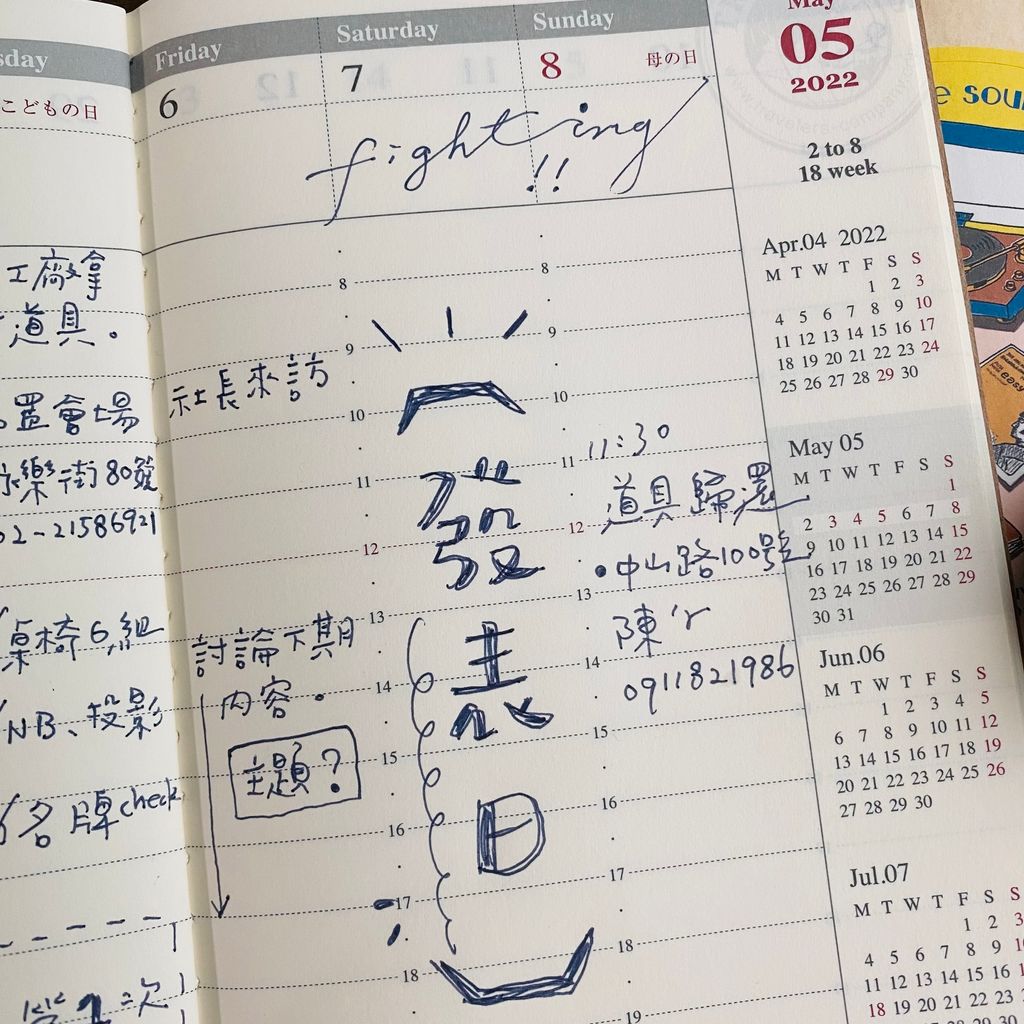 sday
Friday
Saturday
Sunday
May
05
2022
こどもの日
6
7
8
母の日
fighting
!!
2 to 8
18 week
工廠拿
道具。
置會場
永樂街80號
02-21586921
桌椅6組
NB、投影
名牌check
社長來訪
討論下期
內容。
主題?
發表日
11:30
道具歸還
•中山路100號
陳'r
0911821986
8
9
10
11
12
13
14
15
16
17
18
8
9
10
11
12
13
14
15
16
17
18
19
Apr.04 2022
M T W T F S S
1 2 3
4 5 6 7 8 9 10
11 12 13 14 15 16 17
18 19 20 21 22 23 24
25 26 27 28 29 30
May 05
M T W T F S S
1
2 3 4 5 6 7 8
9 10 11 12 13 14 15
16 17 18 19 20 21 22
23 24 25 26 27 28 29
30 31
Jun.06
M T W T F S S
1 2 3 4 5
6 7 8 9 10 11 12
13 14 15 16 17 18 19
20 21 22 23 24 25 26
27 28 29 30
Jul.07
M T W T F S S
1 2 3
4 5 6 7 8 9 10
11 12 13 14 15 16
18 19 20 21 22 23